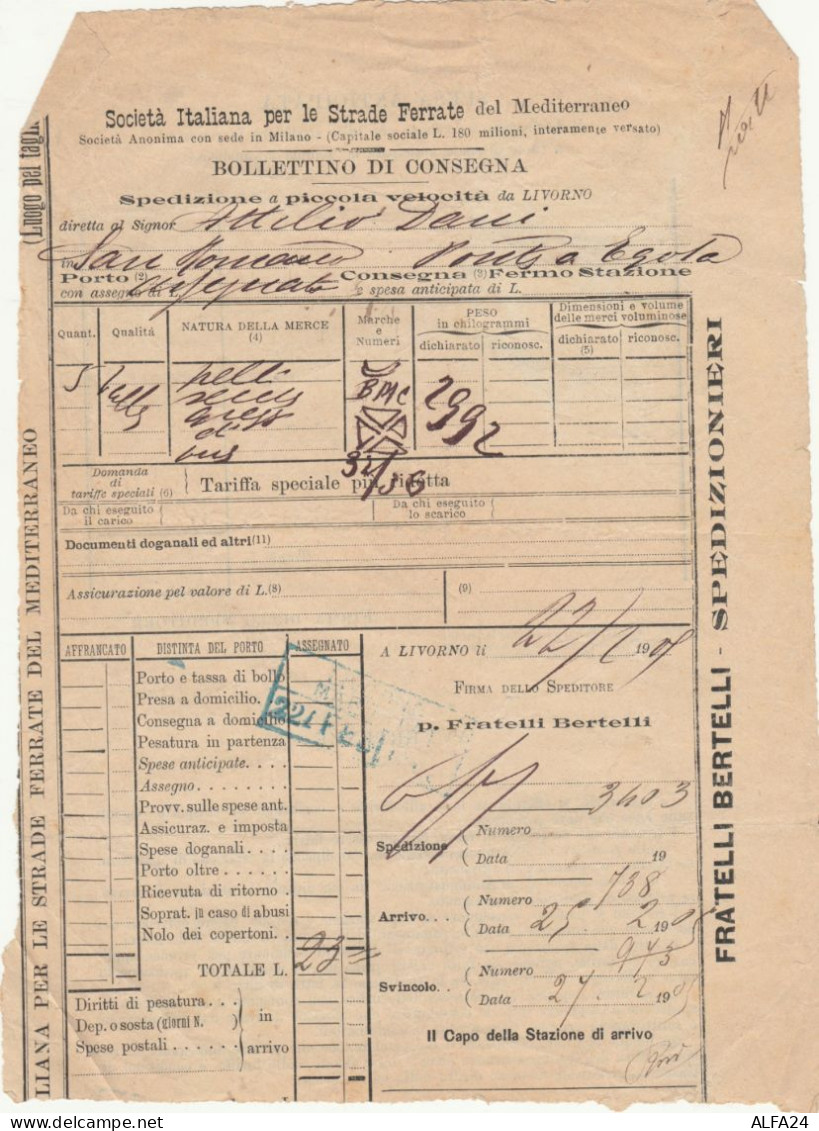 Società Italiana per le Strade Ferrate del Mediterraneo
Società Anonima con sede in Milano - (Capitale sociale L. 180 milioni, interamente versato)
BOLLETTINO DI CONSEGNA
Spedizione a piccola velocità da LIVORNO
diretta al Signor Attilio Dani
in San Romano Ponte a Egola
Porto (2) assegnato Consegna (3) Fermo Stazione
con assegno di L. spesa anticipata di L.
Quant. Qualità NATURA DELLA MERCE (4) Marche e Numeri PESO in chilogrammi Dimensioni e volume delle merci voluminose
dichiarato riconosc. dichiarato (5) riconosc.
5 balle pelli BMC 2992
secche
di
bue
31/36
Domanda di tariffe speciali (6) Tariffa speciale più ridotta
Da chi eseguito il carico Da chi eseguito lo scarico
Documenti doganali ed altri (11)
Assicurazione pel valore di L. (8) (9)
AFFRANCATO DISTINTA DEL PORTO ASSEGNATO
Porto e tassa di bollo
Presa a domicilio.
Consegna a domicilio
Pesatura in partenza
Spese anticipate. . . . .
Assegno. . . . . . .
Provv. sulle spese ant.
Assicuraz. e imposta
Spese doganali. . . .
Porto oltre. . . . . .
Ricevuta di ritorno . .
Soprat. in caso di abusi
Nolo dei copertoni. . .
TOTALE L. 23
Diritti di pesatura. . .
Dep. o sosta (giorni N. ) in
Spese postali . . . . . . arrivo
A LIVORNO li 22/2 1905
FIRMA DELLO SPEDITORE
p. Fratelli Bertelli
3603
Spedizione Numero
Data 19
738
Arrivo. . . Numero
Data 25. 2 1905
975
Svincolo. . Numero
Data 27. 2 1905
Il Capo della Stazione di arrivo
(Luogo pel tagli
LIANA PER LE STRADE FERRATE DEL MEDITERRANEO
FRATELLI BERTELLI - SPEDIZIONIERI
ALFA24